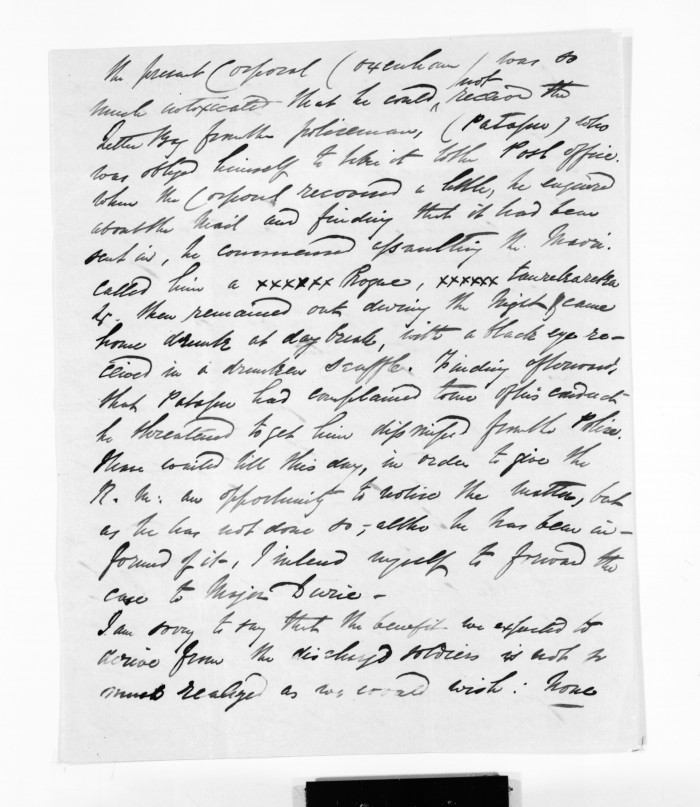 the present Corporal (Oxenham) was so
much intoxicated that he could not receive the
Letter Bag from the policeman, (Patapu) who
was obliged himself to take it to the Post office.
When the Corporal recovered a little, he enquired
about the Mail and finding that it had been
sent in, he commenced assaulting the Maori.
called him a xxxxxx Rogue, xxxxxx taurekareka
&c. then remained out during the Night & came
home drunk at day break, with a black eye re-
ceived in a drunken scuffle. Finding afterwards,
that Patapu had complained to me of his conduct
he threatened to get him dismissed from the Police.
I have waited till this day, in order to give the
R. M. an opportunity to notice the matter, but
as he has not done so, – altho he has been in-
formed of it –, I intend myself to forward the
case to Major Durie –
I am sorry to say that the benefit we expected to
derive from the discharged soldiers is not so
much realized as we would wish: None